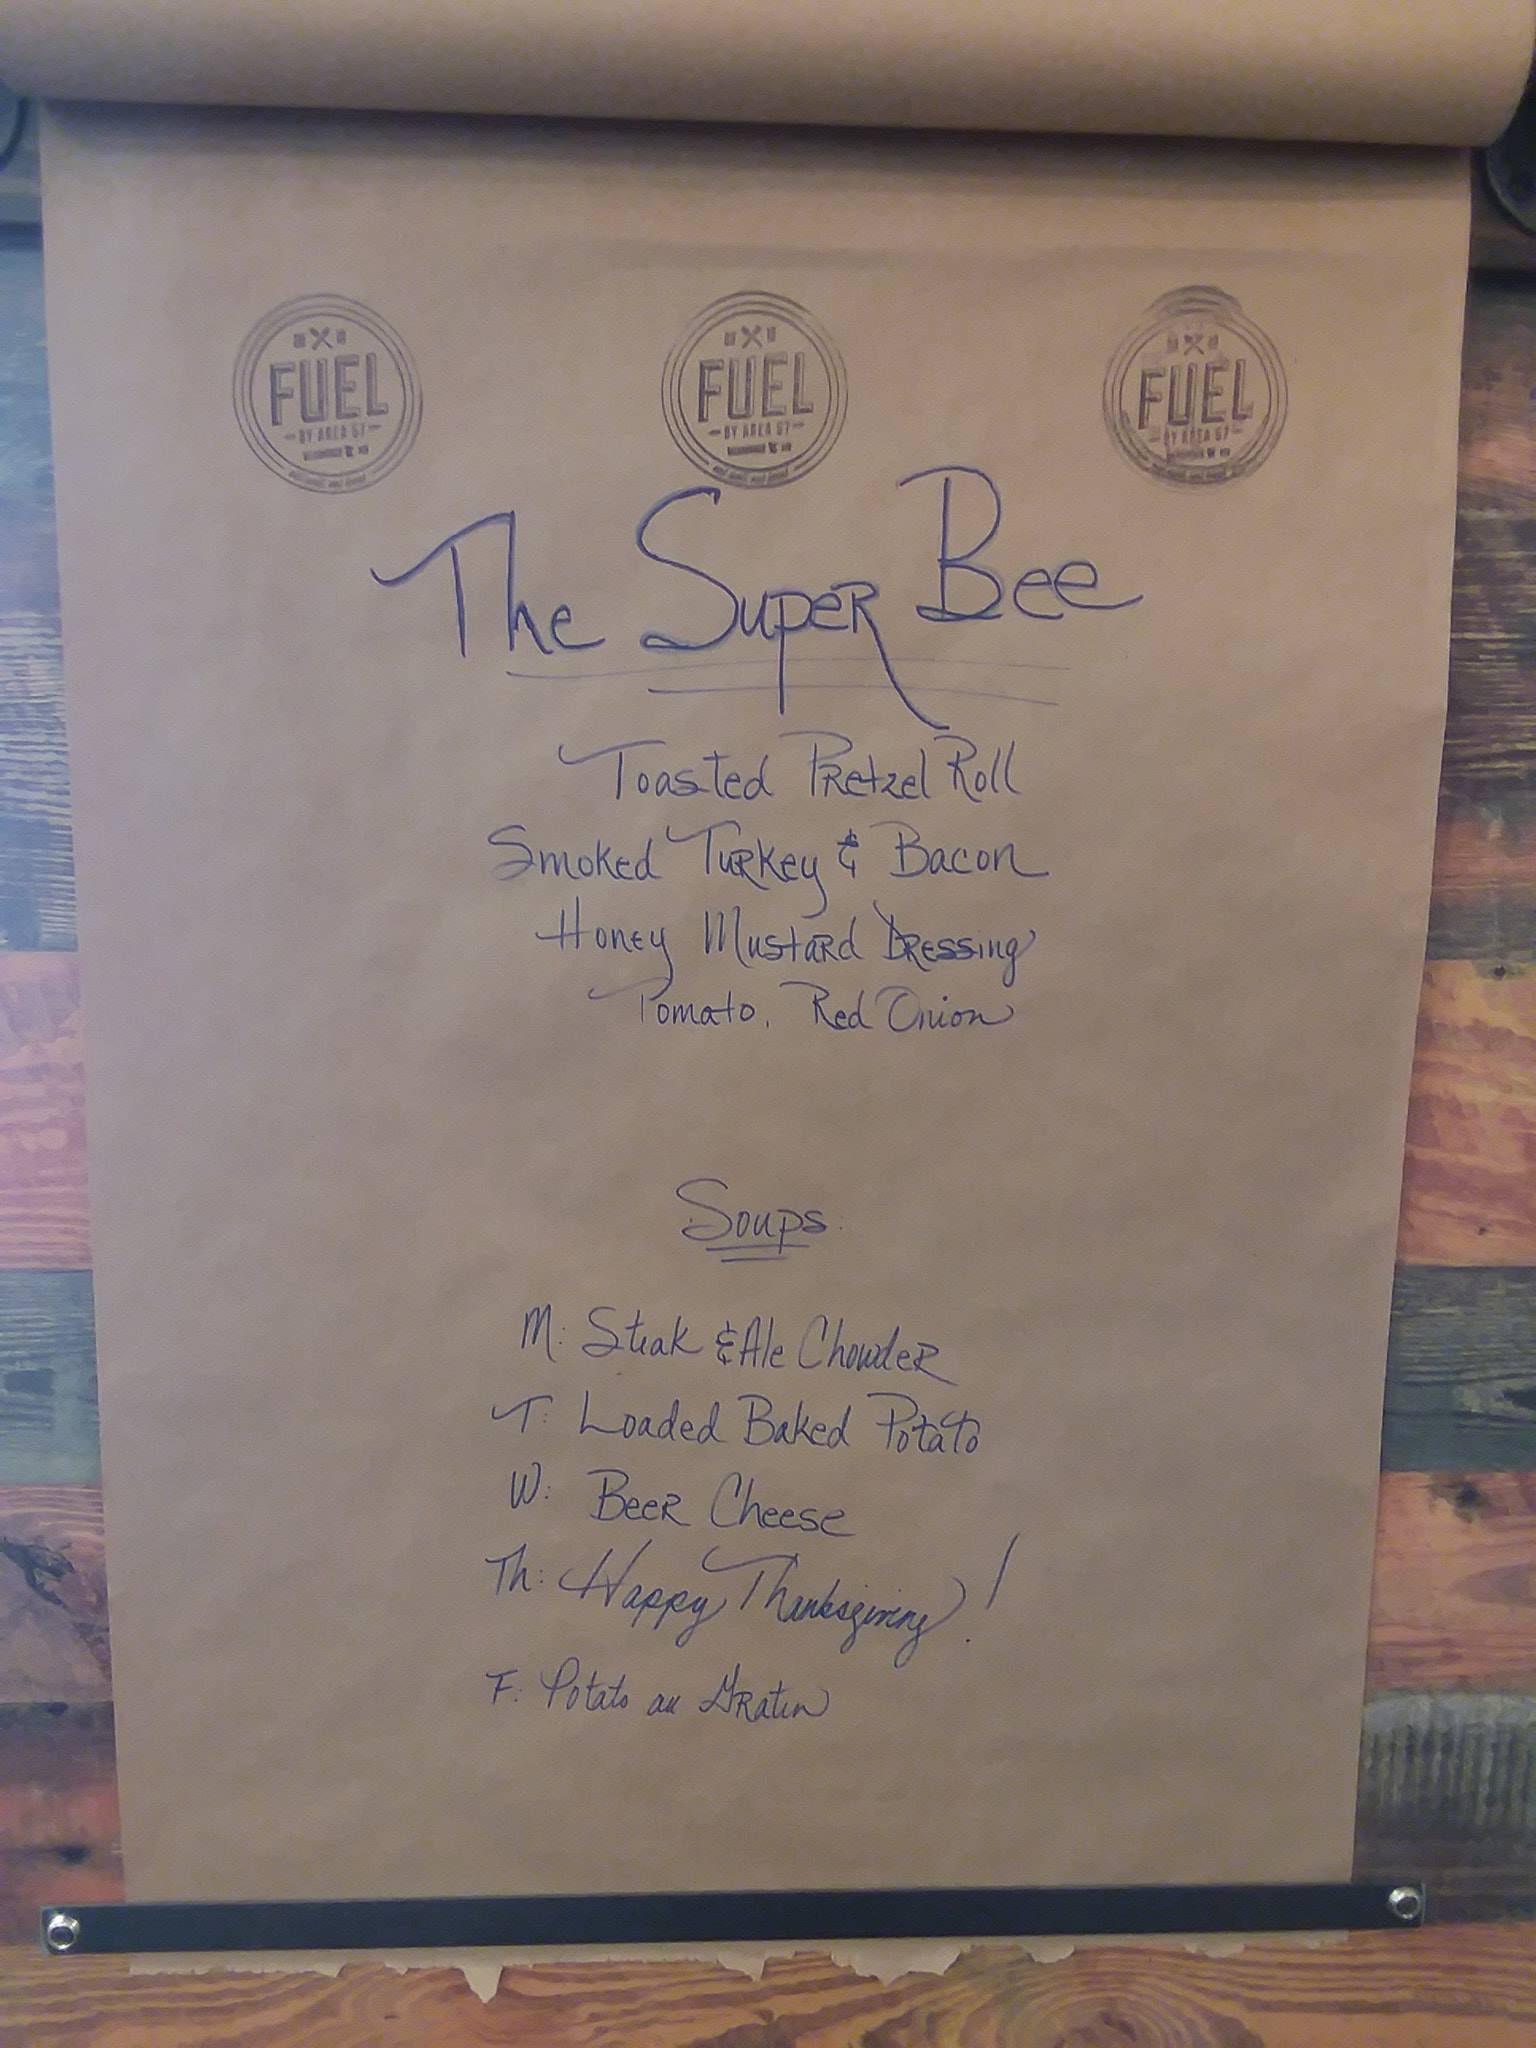 FUEL
BY AREA 57
FUEL
BY AREA 57
FUEL
BY AREA 57
The Super Bee
Toasted Pretzel Roll
Smoked Turkey & Bacon
Honey Mustard Dressing
Tomato, Red Onion
Soups:
M: Steak & Ale Chowder
T: Loaded Baked Potato
W: Beer Cheese
Th: Happy Thanksgiving!
F: Potato au Gratin